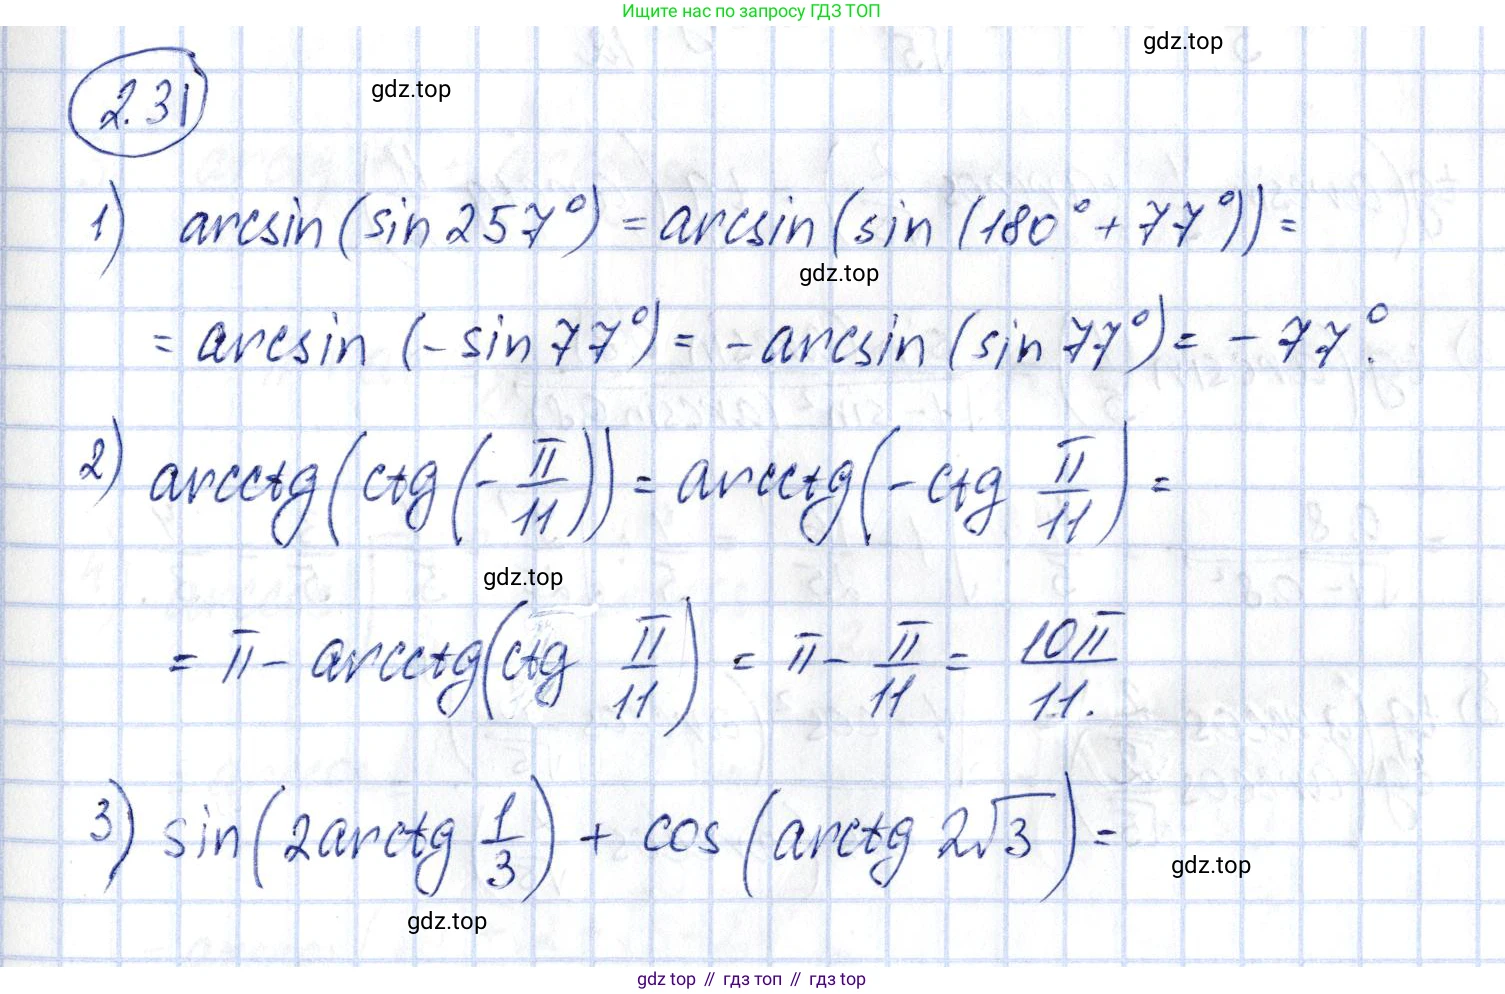 Ищите нас по запросу ГДЗ ТОП
gdz.top
2.31
gdz.top
1) arcsin(sin 257°) = arcsin(sin(180° + 77°)) =
gdz.top
= arcsin(-sin 77°) = -arcsin(sin 77°) = -77°.
2) arcctg(ctg(-π/11)) = arcctg(-ctg π/11) =
gdz.top
= π - arcctg(ctg π/11) = π - π/11 = 10π/11.
3) sin(2arctg 1/3) + cos(arctg 2√3) =
gdz.top
gdz.top
gdz top // гдз топ // гдз top